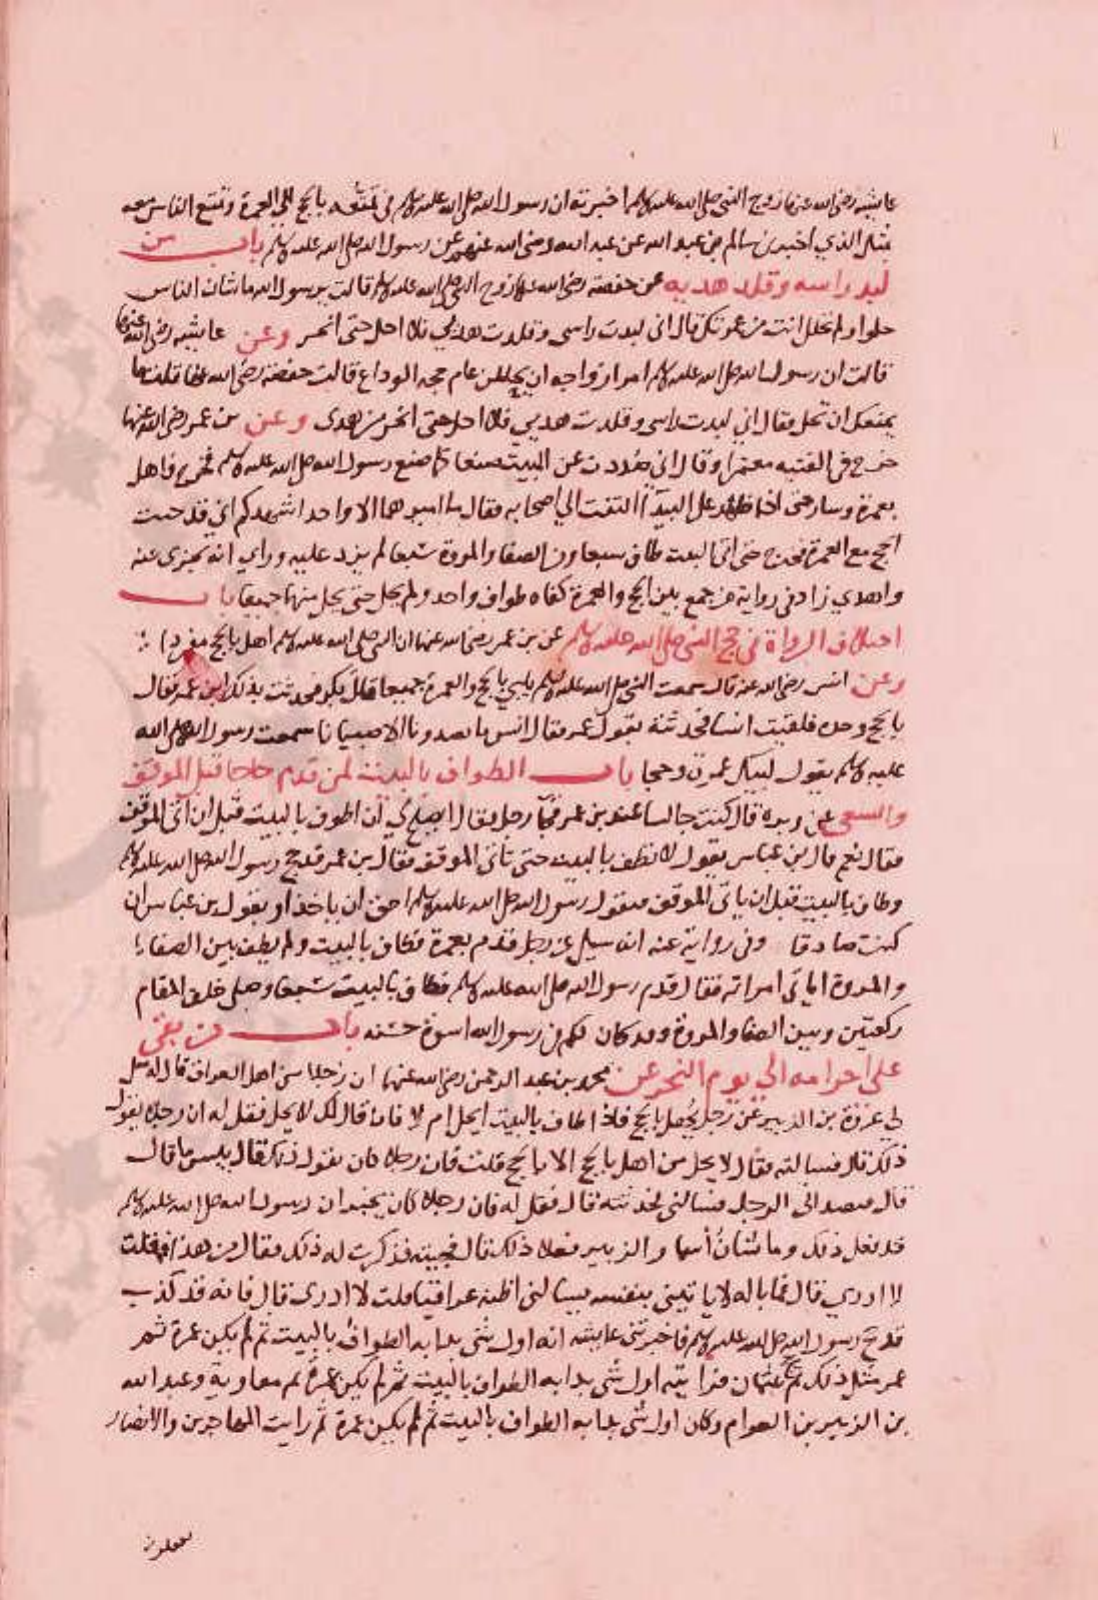 عايشة رضي الله عنها زوج النبي صلى الله عليه وسلم اخبرته ان رسول الله صلى الله عليه وسلم في تمتعه بالحج الى العمرة وتمتع الناس معه
بمثل الذي اخبرني سالم بن عبد الله عن عبد الله رضي الله عنهم عن رسول الله صلى الله عليه وسلم باب من
لبد راسه وقلد هديه عن حفصة رضي الله عنها زوج النبي صلى الله عليه وسلم قالت يرسول الله ما شان الناس
حلوا ولم تحلل انت من عمرتك قال اني لبدت راسي وقلدت هديي فلا احل حتى انحر وعن عايشة رضي الله عنها
قالت ان رسول الله صلى الله عليه وسلم امر ازواجه ان يحللن عام حجه الوداع قالت حفصة رضي الله عنها فقلت ما
يمنعك ان تحل فقال اني لبدت راسي وقلدت هديي فلا احل حتى انحر من هدى وعن بن عمر رضي الله عنها
خرج في الفتنه معتمرا وقال اني صددت عن البيت صنعنا كما صنع رسول الله صلى الله عليه وسلم فخرج فاهل
بعمرة وسار حتى اذا ظهر على البيدآ التفت الي اصحابه فقال ما امرهما الا واحد اشهدكم اني قد اوجبت
الحج مع العمرة فخرج حتى اتى البيت طاف سبعا وبين الصفا والمروة سبعا لم يزد عليه وراي انه يجزي عنه
واهدي زاد في رواية من جمع بين الحج والعمرة كفاه طواف واحد ولم يحل حتى يحل منهما جميعا باب
اختلاف الرواة في حج النبي صلى الله عليه وسلم عن بن عمر رضي الله عنها ان النبي صلى الله عليه وسلم اهل بالحج مفردا
وعن انس رضي الله عنه قال سمعت النبي صلى الله عليه وسلم يلبي بالحج والعمرة جميعا قال بكر فحدثت بذلك ابن عمر فقال
بالحج وحده فلقيت انسا فحدثته بقول بن عمر فقال انس ما تعدونا الا صبيانا سمعت رسول الله صلى الله
عليه وسلم يقول لبيك عمرة وحجا باب الطواف بالبيت لمن قدم حاجا قبل الموقف
والسعي عن وبرة قال كنت جالسا عند بن عمر فجآ رجل فقال ايصلح لي ان اطوف بالبيت قبل ان اتى الموقف
فقال نعم قال بن عباس يقول لا تطف بالبيت حتى تاتي الموقف فقال بن عمر قد حج رسول الله صلى الله عليه وسلم
وطاف بالبيت قبل ان ياتي الموقف فبقول رسول الله صلى الله عليه وسلم احق ان ياخذ او بقول بن عباس ان
كنت صادقا وفي رواية عنه انه سيل عن رجل قدم بعمرة فطاف بالبيت ولم يطف بين الصفا
والمروة اياتي امراته فقال قدم رسول الله صلى الله عليه وسلم فطاف بالبيت سبعا وصلى خلف المقام
ركعتين وبين الصفا والمروة وقد كان لكم في رسول الله اسوة حسنه باب من بقى
على احرامه الي يوم النحر عن محمد بن عبد الرحمن رضي الله عنها ان رجلا من اهل العراق قال له سل
لي عروة بن الزبير عن رجل يهل بالحج فاذا طاف بالبيت ايحل ام لا فان قال لك لا يحل فقل له ان رجلا يقول
ذلك قال فسالته فقال لا يحل من اهل بالحج الا بالحج قلت فان رجلا كان يقول ذلك قال بيس ما قال
قال فتصدالي الرجل فسالني فحدثته قال فقل له فان رجلا كان يخبر ان رسول الله صلى الله عليه وسلم
قد فعل ذلك وما شان أسما والزبير فعلا ذلك قال فجيته فذكرت له ذلك فقال من هذا فقلت
لا ادري قال فما باله لا ياتيني بنفسه يسالني اظنه عراقيا قلت لا ادري قال فانه قد كذب
قد حج رسول الله صلى الله عليه وسلم فاخبرتني عايشة انه اول شي بدا به الطواف بالبيت ثم لم يكن عمرة ثم
عمر مثل ذلك ثم حج عثمان فرايته اول شي بدا به الطواف بالبيت ثم لم يكن عمرة ثم معاوية وعبد الله
بن الزبير بن العوام وكان اول شي بدا به الطواف بالبيت ثم لم يكن عمرة ثم رايت المهاجرين والانصار
يفعلون